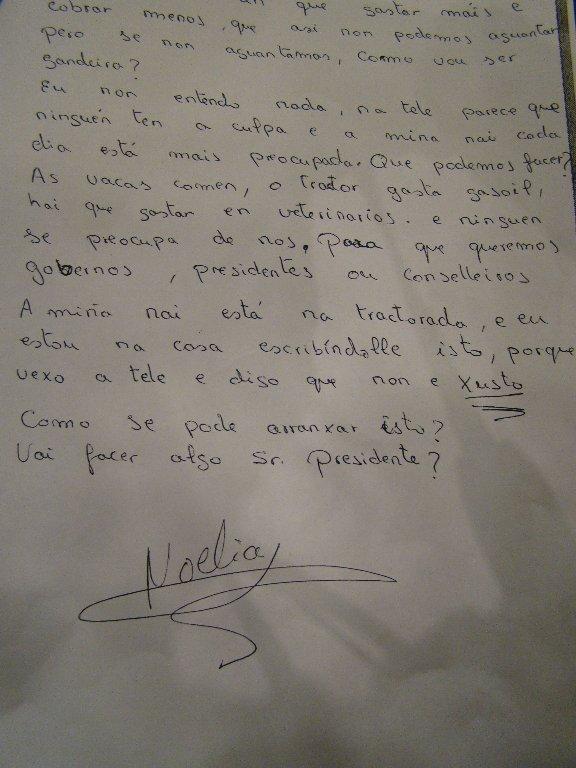 que gastar máis e
cobrar menos, que así non podemos aguantar
pero se non aguantamos, como vou ser
gandeira?
Eu non entendo nada, na tele parece que
ninguén ten a culpa e a miña nai cada
dia está mais preocupada. Que podemos facer?
As vacas comen, o trator gasta gasoil,
hai que gastar en veterinarios. e ninguen
se preocupa de nos. Para que queremos
gobernos, presidentes ou conselleiros
A miña nai está na tractorada, e eu
estou na casa escribíndolle isto, porque
vexo a tele e digo que non e xusto
Como se pode arranxar isto?
Vai facer algo Sr. Presidente?
Noelia